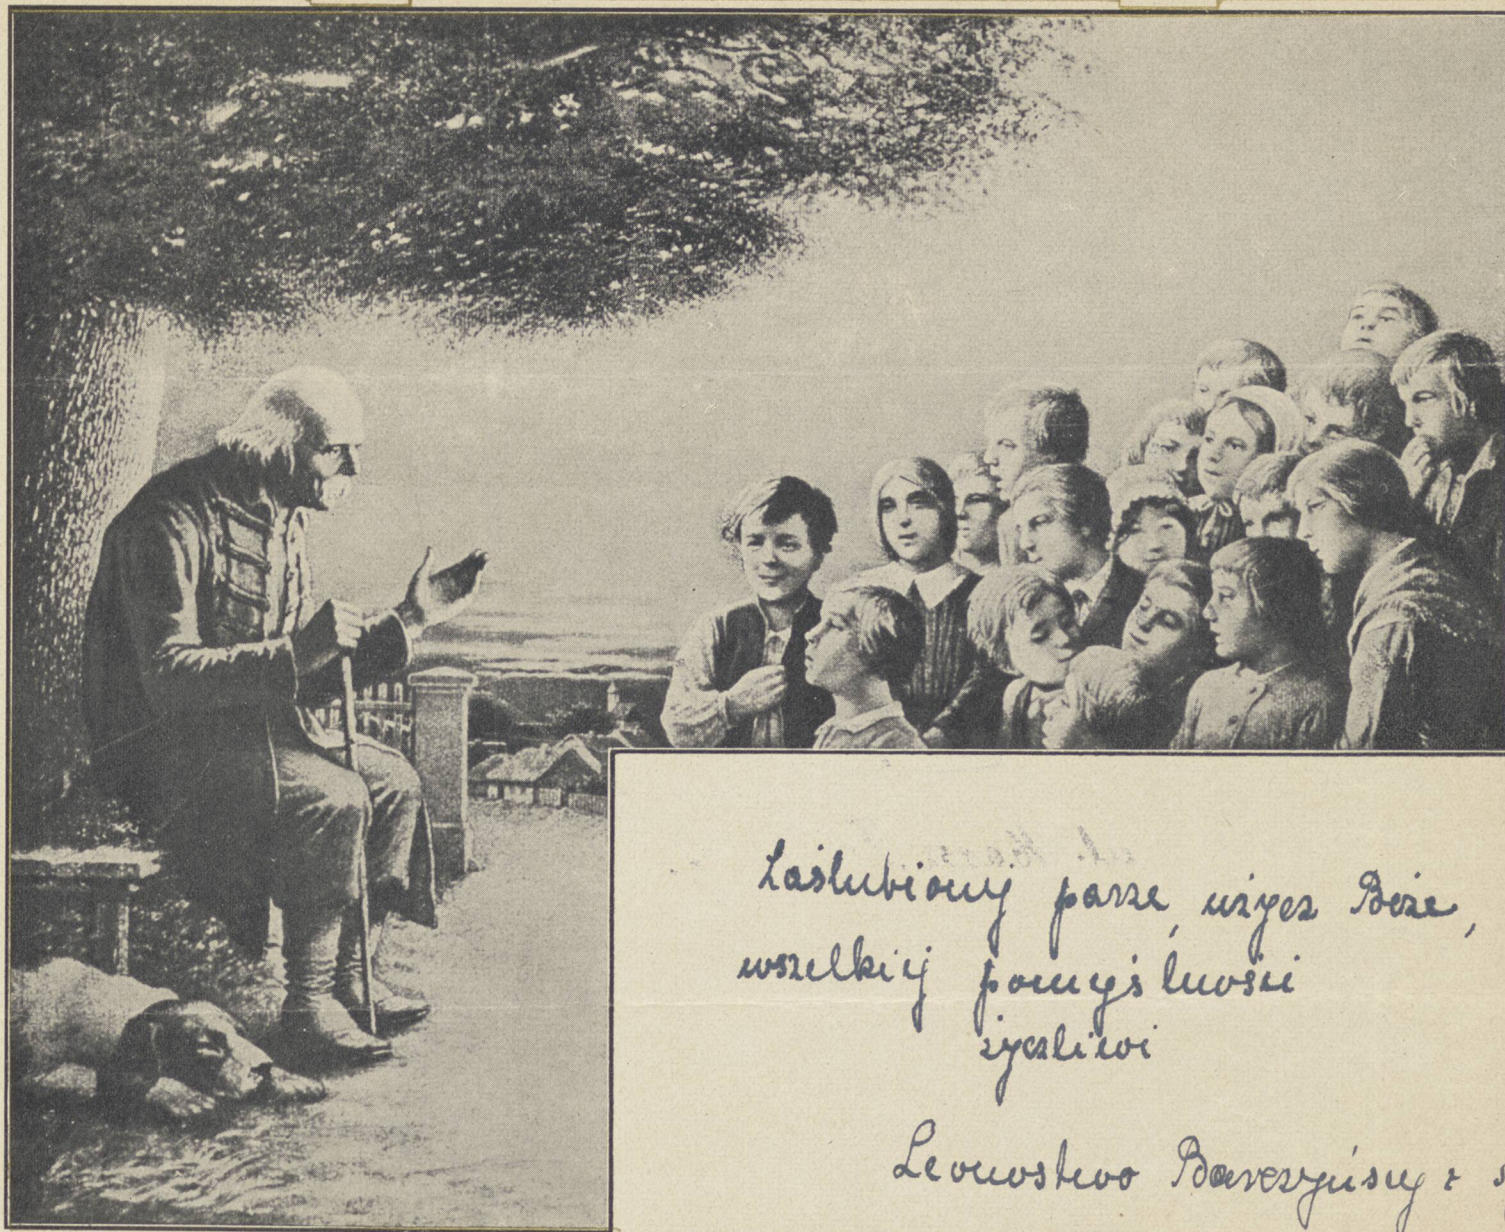 Zaślubionej parze, użycz Boże,
wszelkiej pomyślności
życzliwi
Leonostwo Barczyńscy z